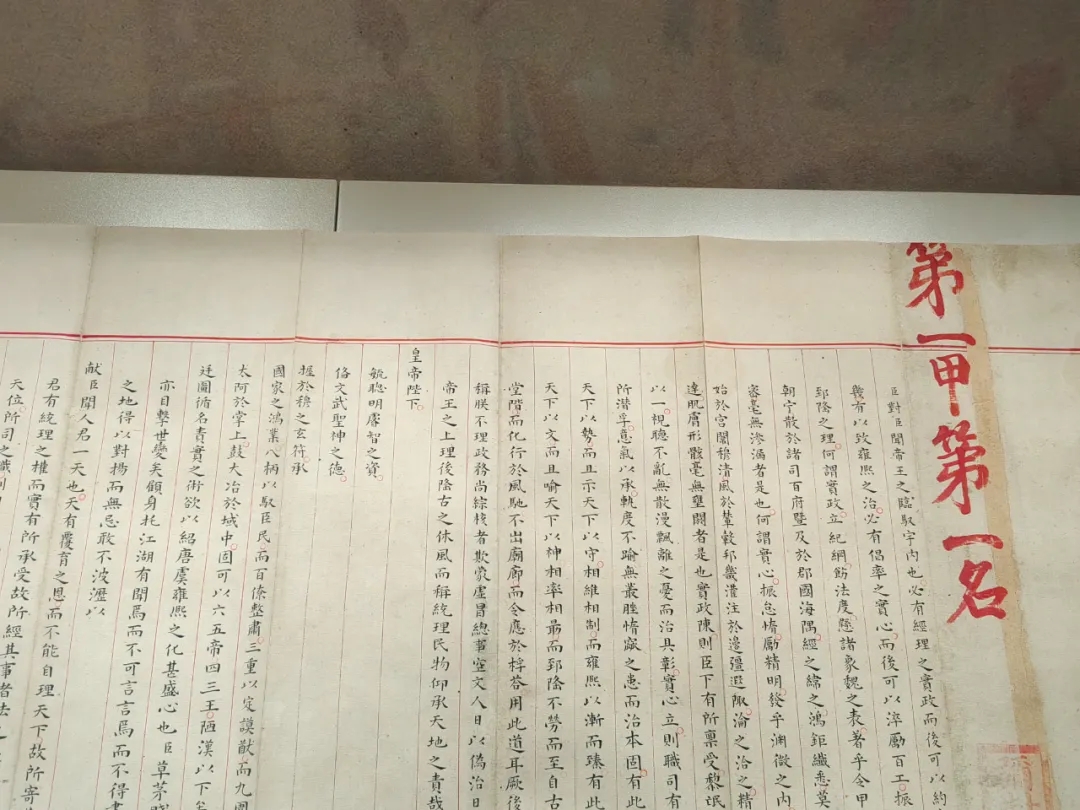 第一甲第一名
臣對臣聞帝王之臨馭宇内也必有經理之實政而後可以約
幾有以致雍熙之治必有倡率之實心而後可以淬勵百工振
郅隆之理何謂實政立紀綱飭法度懸諸象魏之表著乎令甲
朝宁散於諸司百府暨及於郡國海隅經之緯之鴻鉅纖悉莫
審毫無滲漏者是也何謂實心振怠惰勵精明發乎淵微之内
始於宮闈穆清風於輦轂邦畿灌注於邊疆遐陬淪之洽之精
達肌膚形骸毫無壅閼者是也實政陳則臣下有所稟受黎氓
以一視聽不亂無散漫飄離之憂而治具彰實心立則職司有
所潛孚意氣以承軌度不踰無叢脞惰窳之患而治本固有此
天下以勢而且示天下以守相維相制而雍熙以漸而臻有此
天下以文而且喻天下以神相率相勗而郅隆不勞而至自古
堂階而化行於風馳不出廟廊而令應於桴荅用此道耳厥後
稱朕不理政務尚綜核者欺蒙虛冒總事空文人日以偽治日
帝王之上理後隆古之休風而稱統理民物仰承天地之責哉
皇帝陛下
毓聰明睿智之資
備文武聖神之德
握於穆之玄符承
國家之鴻業八柄以馭臣民而百僚整肅三重以定謨猷而九圍
太阿於掌上鼓大冶於域中固可以六五帝四三王陋漢以下
廷圖循名責實之術欲以紹唐虞雍熙之化甚盛心也臣草茅
亦目擊世變矣顧身托江湖有聞焉而不可言言焉而不得
之地得以對揚而無忌敢不披瀝以
献臣聞人君一天也天有覆育之恩而不能自理天下故所寄
君有統理之權而實有所承受故所經其事者法
天位所司之職